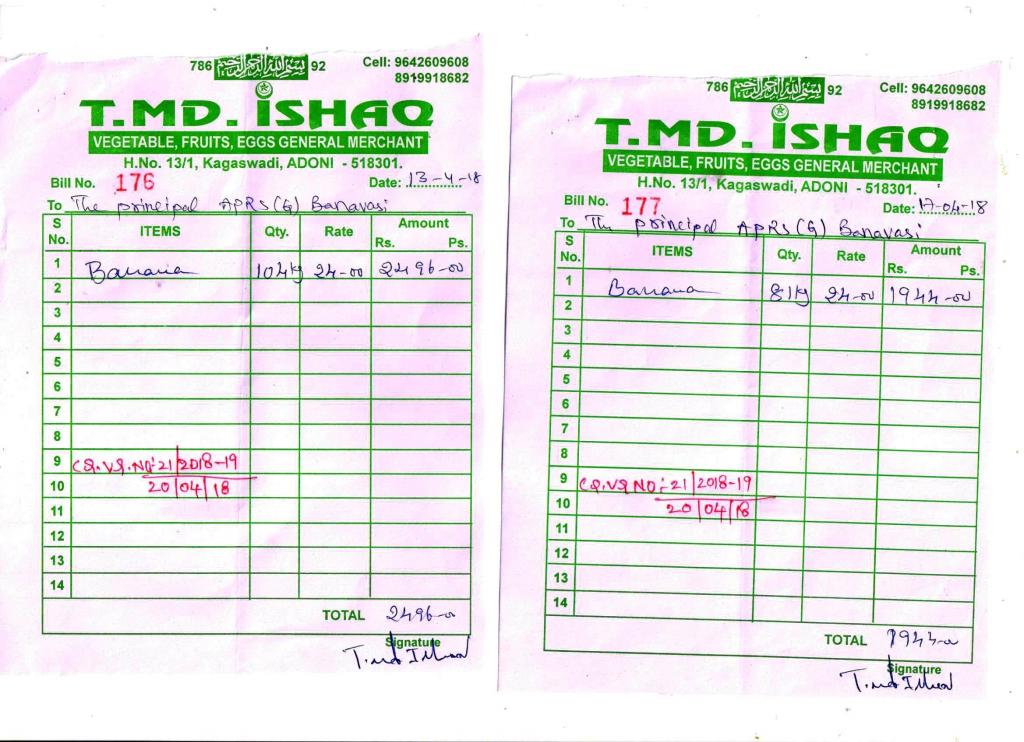 786 بسم الله الرحمن الرحيم 92
Cell: 9642609608
8919918682
T.MD. ISHAQ
VEGETABLE, FRUITS, EGGS GENERAL MERCHANT
H.No. 13/1, Kagaswadi, ADONI - 518301.
Bill No. 176 Date: 13-4-18
To The principal APRS (G) Banavasi
S No. ITEMS Qty. Rate Amount Rs. Ps.
1 Banana 104kg 24-00 2496-00
2
3
4
5
6
7
8
9 CS.VS.NO:-21/2018-19
10 20/04/18
11
12
13
14
TOTAL 2496-0
Signature
T.md Ishaq
786 بسم الله الرحمن الرحيم 92
Cell: 9642609608
8919918682
T.MD. ISHAQ
VEGETABLE, FRUITS, EGGS GENERAL MERCHANT
H.No. 13/1, Kagaswadi, ADONI - 518301.
Bill No. 177 Date: 17-04-18
To The principal APRS (G) Banavasi
S No. ITEMS Qty. Rate Amount Rs. Ps.
1 Banana 81kg 24-00 1944-00
2
3
4
5
6
7
8
9 CS.VS NO:-21/2018-19
10 20/04/18
11
12
13
14
TOTAL 1944-0
Signature
T.md Ishaq